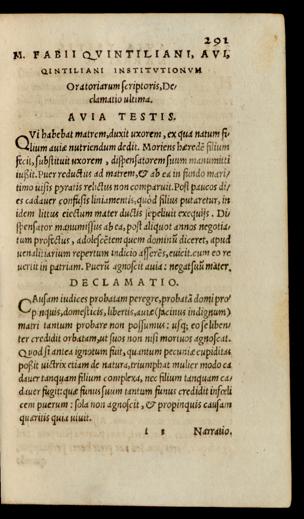 291
M. FABII QVINTILIANI, AVI,
QINTILIANI INSTITVTIONVM
Oratoriarum scriptoris, De
clamatio ultima.
AVIA TESTIS.
QVi habebat matrem, duxit uxorem, ex qua natum fi=
lium auiæ nutriendum dedit. Moriens hæredẽ filium
fecit, substituit uxorem, dispensatorem suum manumitti
iußit. Puer reductus ad matrem, & ab ea in fundo mari/
timo uisis pyratis relictus non comparuit. Post paucos di/
es cadauer confusis liniamentis, quòd filius putaretur, in
idem littus eiectum mater ductis sepeliuit exequijs. Di/
spensator manumissus ab ea, post aliquot annos negotia/
tum profectus, adolescẽtem quem dominũ diceret, apud
uenalitiarium repertum indicio asserẽs, euicit. cum eo re
uertit in patriam. Puerũ agnoscit auia: negat suũ mater.
DECLAMATIO.
CAusam iudices probatam peregre, probatã domi pro/
pinquis, domesticis, libertis, auiæ (facinus indignum)
matri tantum probare non possumus: usq; eo se liben/
ter credidit orbatam, ut suos non nisi mortuos agnoscat.
Quod si antea ignotum fuit, quantum pecuniæ cupiditas
poßit uictrix etiam de natura, triumphat mulier modo ca
dauer tanquam filium complexa, nec filium tanquam ca/
dauer fugit: quæ funus suum tantum funus credidit infœli
cem puerum: sola non agnoscit, & propinquis causam
quæritis quia uiuit.
Narratio.